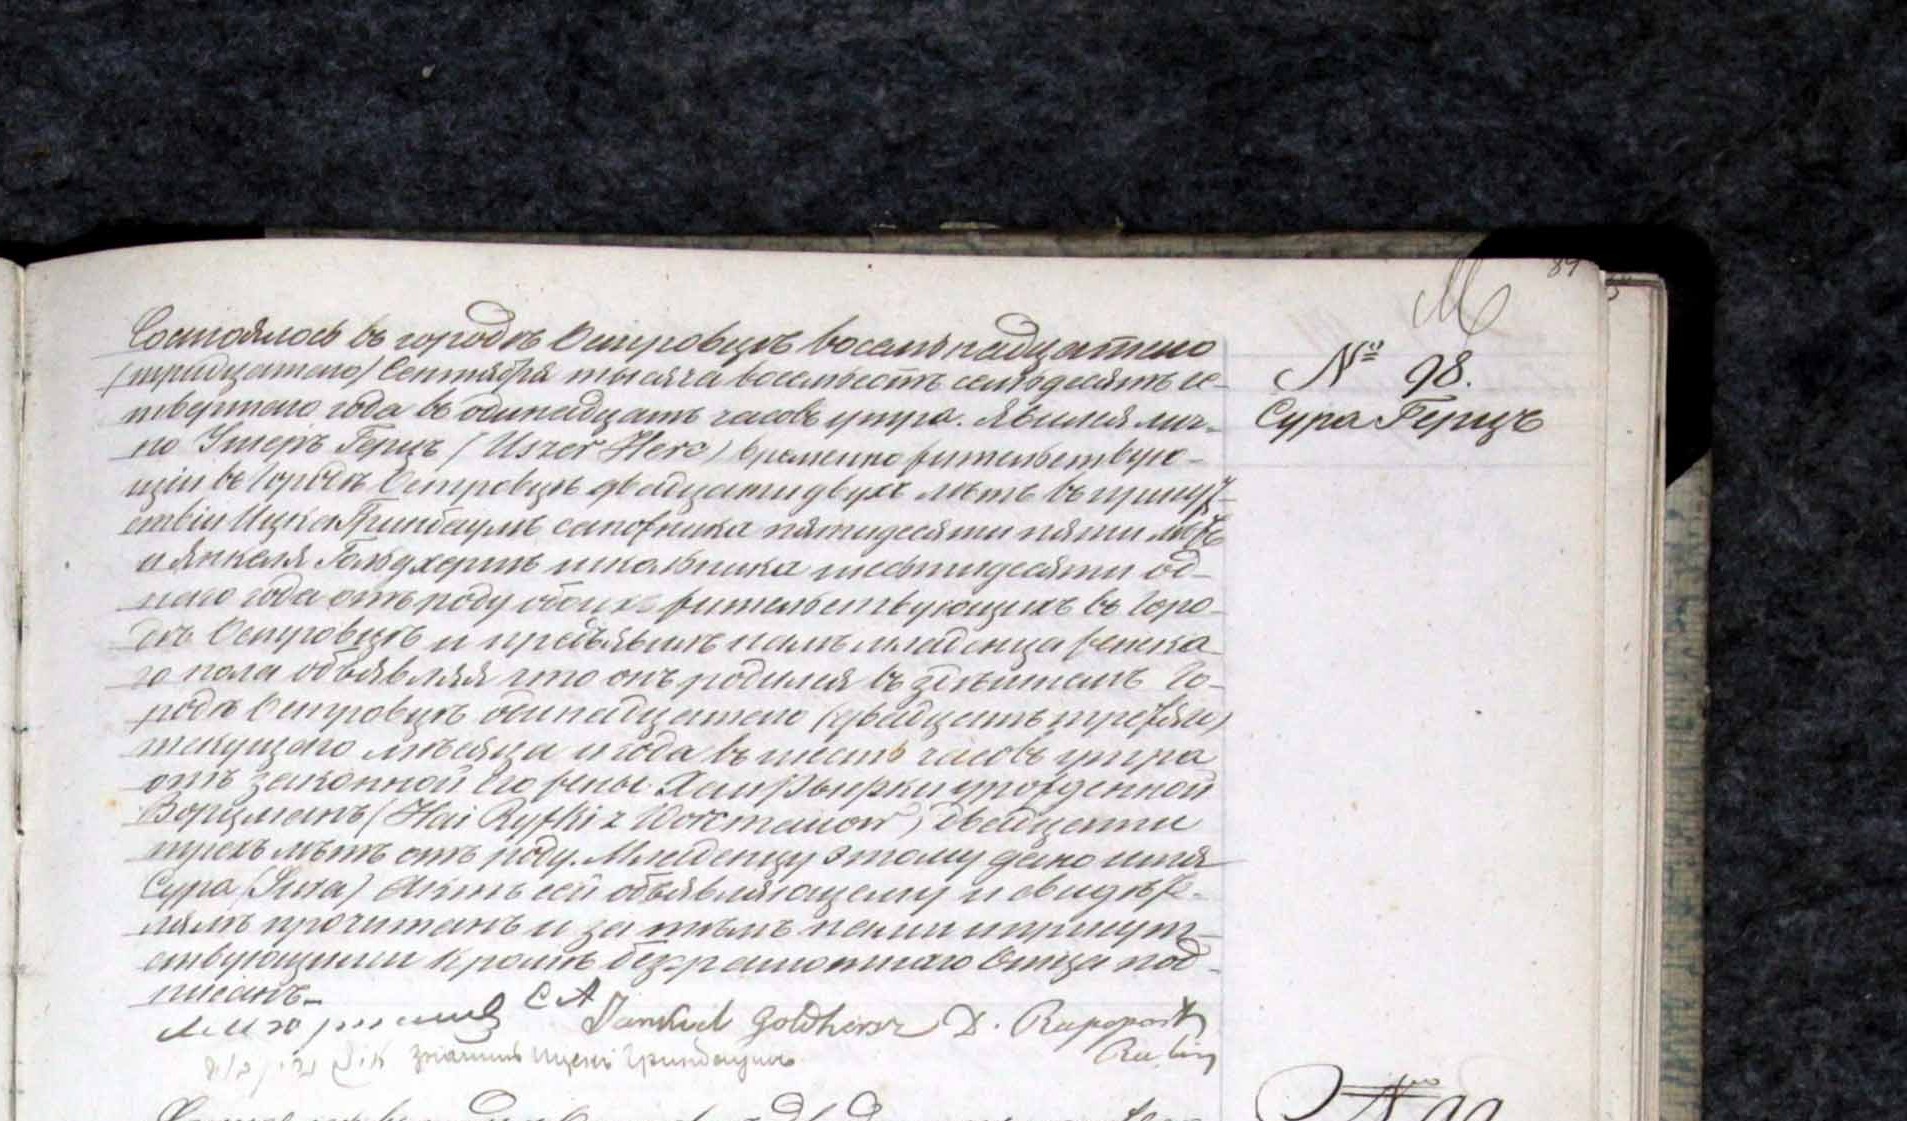 89
№ 98.
Сура Герцъ
Состоялось въ городѣ Островцѣ восемнадцатаго
(тридцатаго) Сентября тысяча восемьсотъ семьдесятъ че-
твертаго года въ одинадцать часовъ утра. Явился лич-
но Ушеръ Герцъ (Uszer Herc) временно жительствую-
щій въ городѣ Островцѣ двадцати двухъ лѣтъ въ присут-
ствіи Ицка Гринбаумъ сапожника пятидесяти пяти лѣтъ
и Янкеля Гольдхерцъ школьника шестидесяти од-
наго года отъ роду обоихъ жительствующихъ въ горо-
дѣ Островцѣ и предъявилъ намъ младенца женска-
го пола объявляя что онъ родился въ здѣшнемъ го-
родѣ Островцѣ одинадцатаго (двадцать третьяго)
текущаго мѣсяца и года въ шесть часовъ утра
отъ законной его жены Хаи Рывки урожденной
Ворцманъ (Hai Ryfki z Worcmanow) двадцати
трехъ лѣтъ отъ роду. Младенцу этому дано имя
Сура (Sura) Актъ сей объявляющему и свидѣте-
лямъ прочитанъ и за тѣмъ нами и присут-
ствующими кромѣ безграмотнаго Отца под-
писанъ.
Jankiel Goldhersz D. Rapoport
Rubin
значитъ Ицекъ Гринбаумъ
№ 99